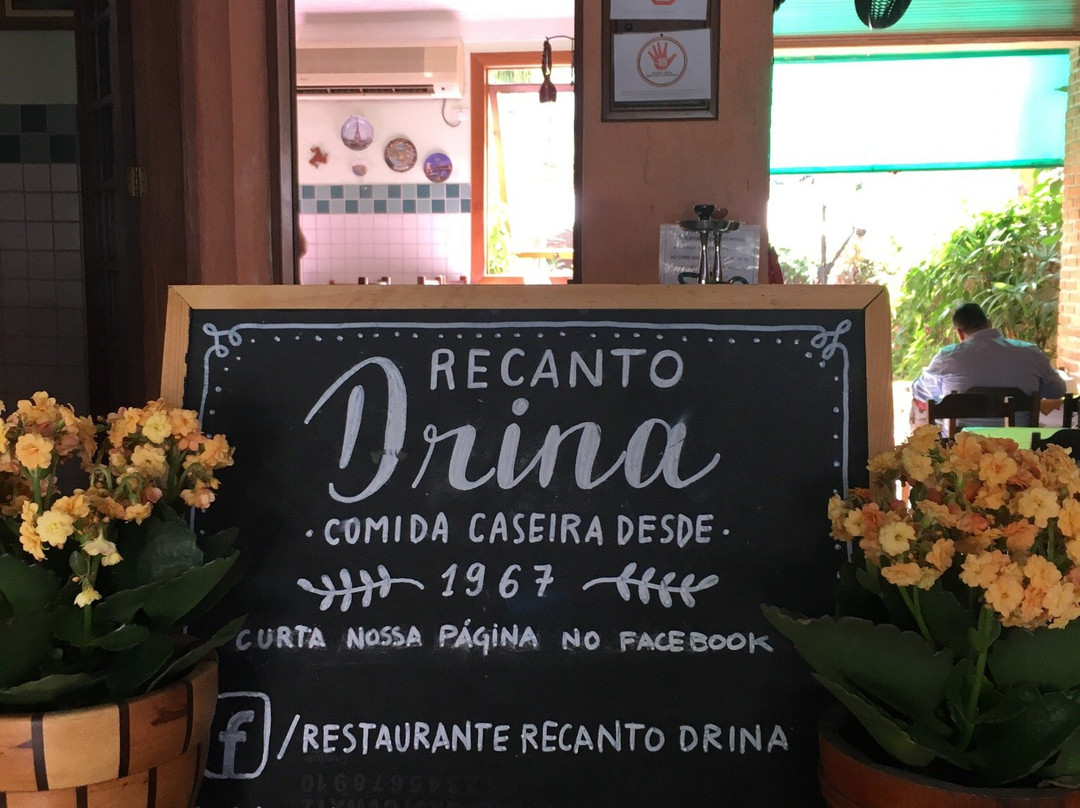 18
RECANTO
Drina
·COMIDA CASEIRA DESDE·
1967
CURTA NOSSA PÁGINA NO FACEBOOK
f/RESTAURANTE RECANTO DRINA